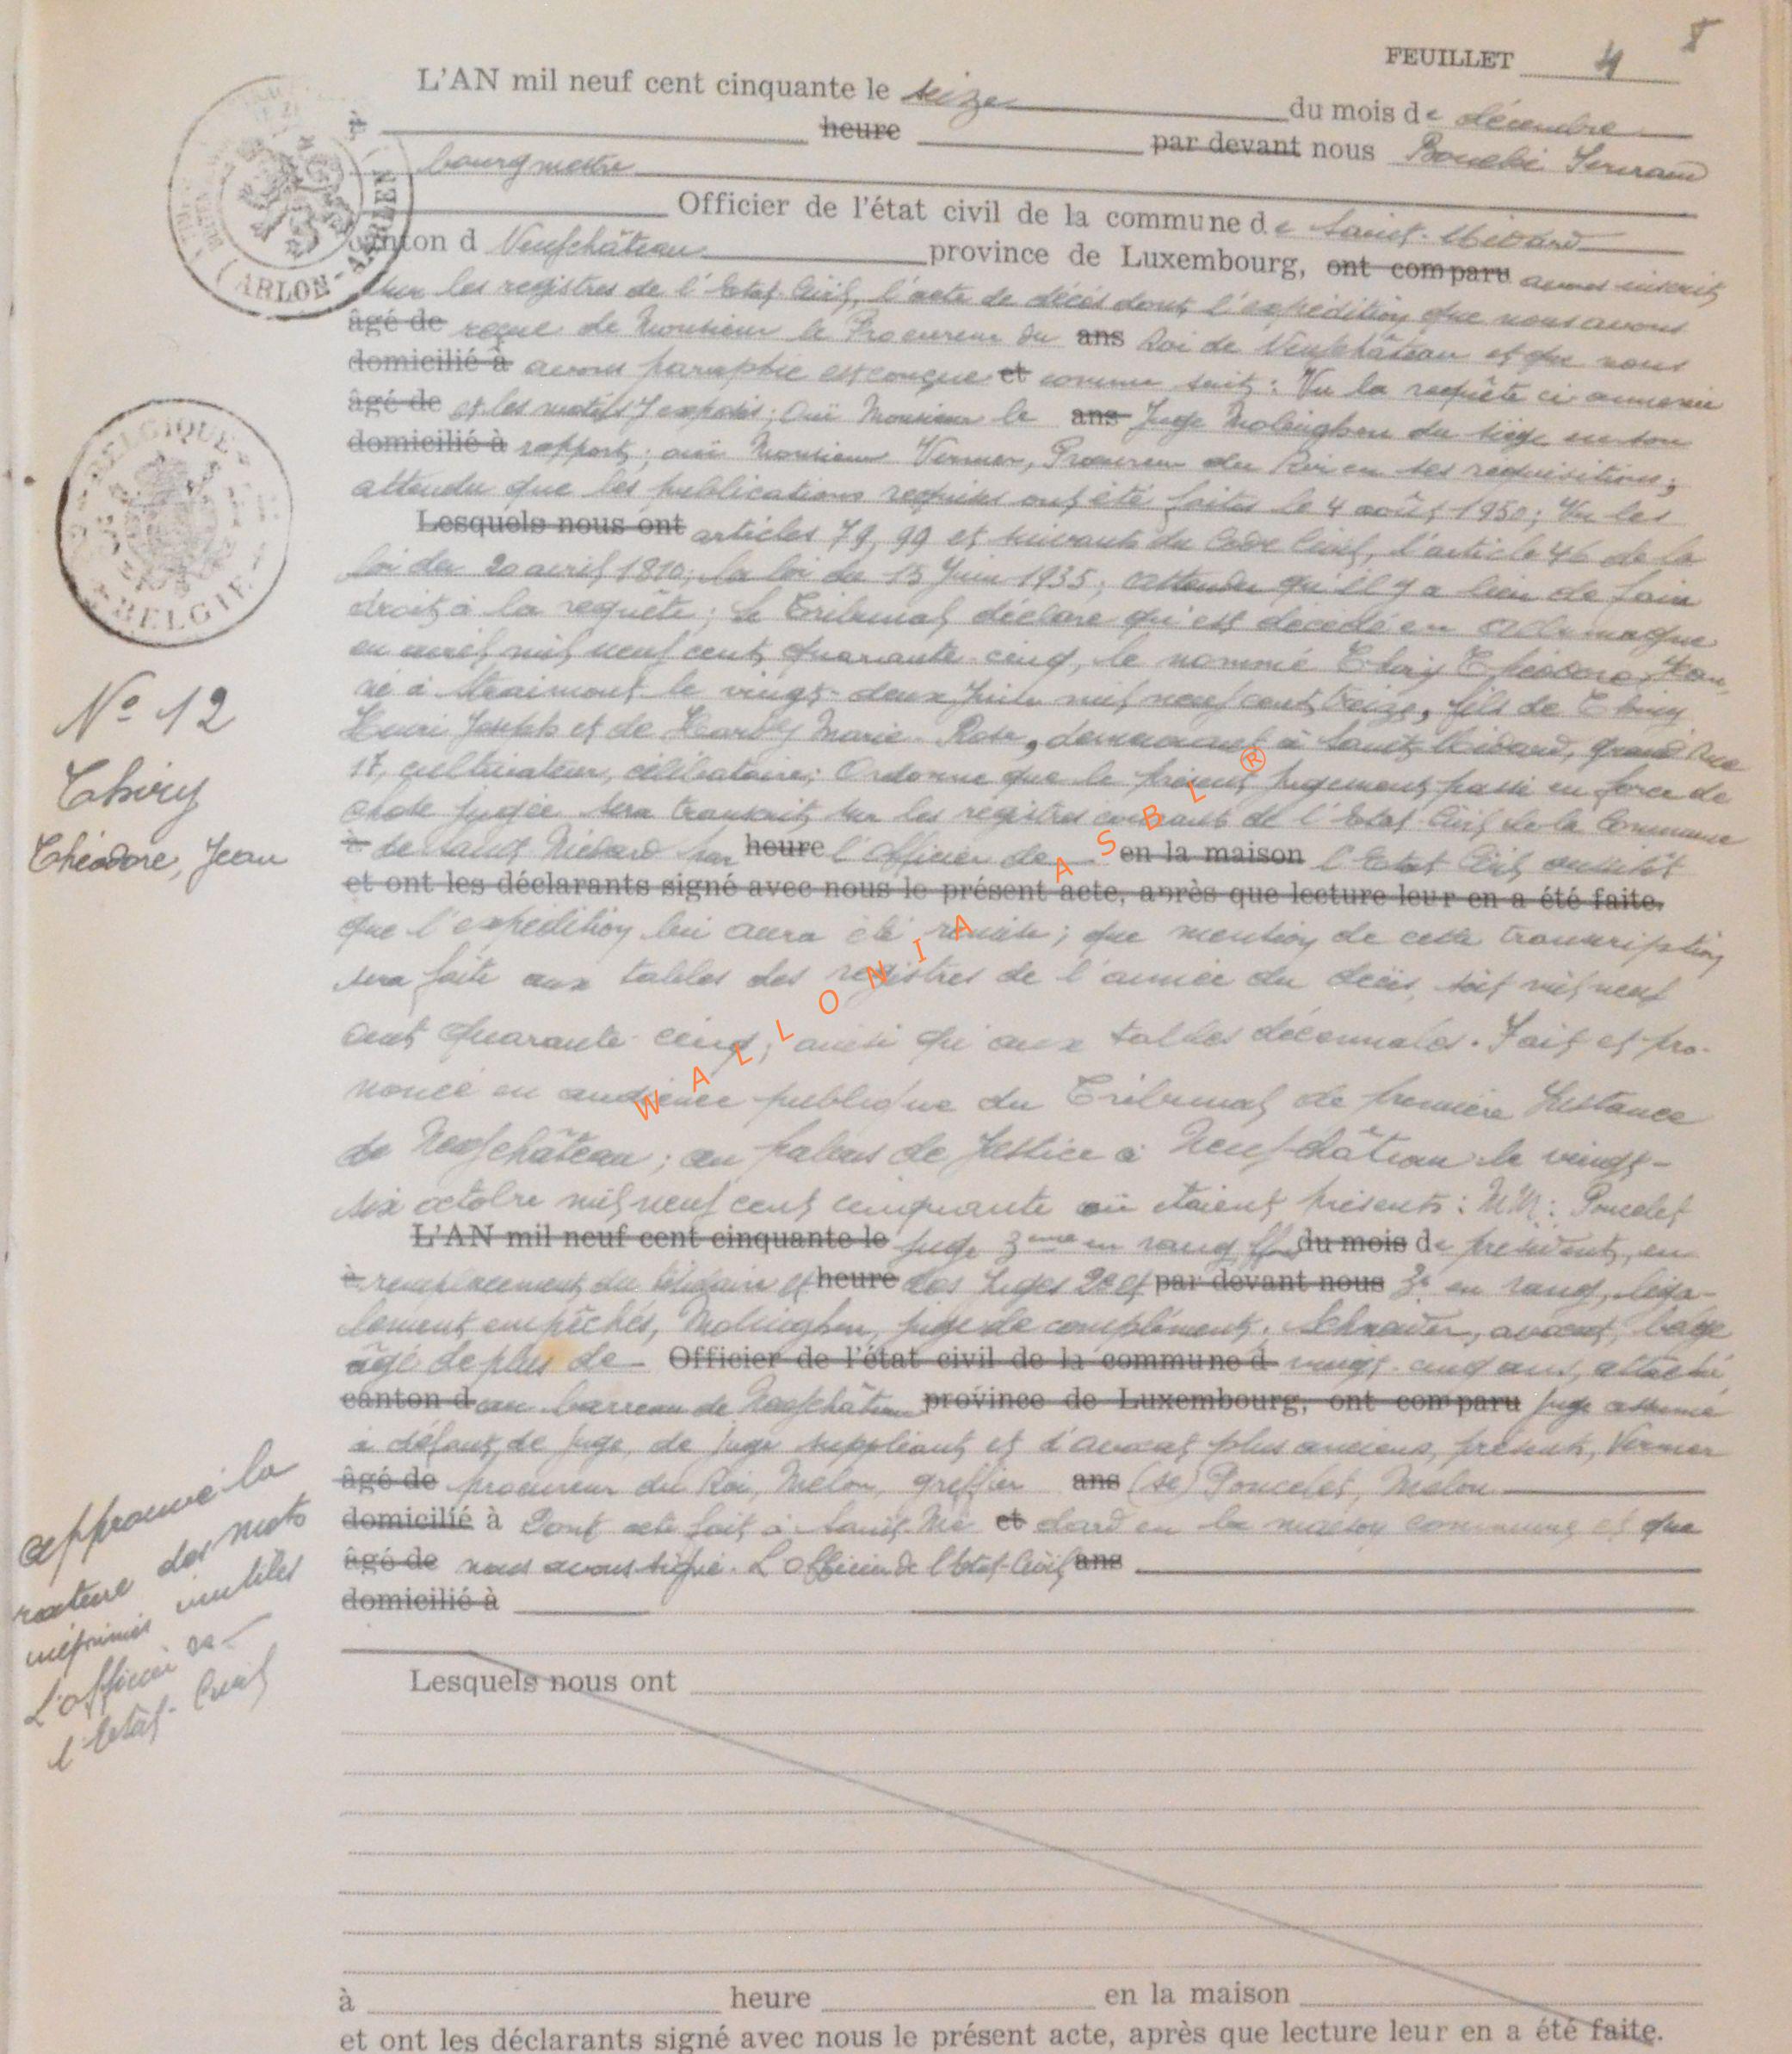 FEUILLET 4 8
L'AN mil neuf cent cinquante le seize du mois de décembre
à heure par devant nous
bourgmestre
Officier de l'état civil de la commune de Saint-Médard
canton d Neufchâteau province de Luxembourg, ont comparu avons inscrit
sur les registres de l'Etat-Civil, l'acte de décès dont l'expédition que nous avons
âgé de reçue de Monsieur le Procureur du ans Roi de Neufchâteau et que nous
domicilié à avons paraphée est conçue et comme suit : Vu la requête ci-annexée
âgé de et les motifs y exposés ; Ouï Monsieur le ans Juge Molinghen du siège en son
domicilié à rapport ; ouï Monsieur Verrier, Procureur du Roi en ses requisitions ;
attendu que les publications requises ont été faites le 4 août 1950 ; Vu les
Lesquels nous ont articles 79, 99 et suivants du Code Civil, l'article 46 de la
loi du 20 avril 1810, la loi du 15 Juin 1935 ; attendu qu'il y a lieu de faire
droit à la requête ; le Tribunal déclare qu'est décédé en Allemagne
en avril mil neuf cent quarante-cinq, le nommé Thiry Théodore, Jean,
né à Straimont le vingt-deux juin mil neuf cent treize, fils de Thiry
Henri Joseph et de Hardy Marie-Rose, demeurant à Saint-Médard, grand'Rue
17, cultivateur, célibataire ; Ordonne que le présent jugement passé en force de
chose jugée sera transcrit sur les registres courants de l'Etat-Civil de la Commune
à de Saint-Médard par heure l'officier de en la maison l'Etat-Civil aussitôt
et ont les déclarants signé avec nous le présent acte, après que lecture leur en a été faite.
que l'expédition lui aura été remise ; que mention de cette transcription
sera faite aux tables des registres de l'année du décès, soit mil neuf
cent quarante-cinq ; ainsi qu'aux tables décennales. Fait et pro-
noncé en audience publique du Tribunal de première Instance
de Neufchâteau ; au palais de Justice à Neufchâteau le vingt-
six octobre mil neuf cent cinquante où étaient présents : MM : Poncelet
L'AN mil neuf cent cinquante le juge 3eme en rang ff du mois de président, en
à remplacement du titulaire et heure des Juges 2e et par devant nous 3e en rang, léga-
lement empêchés, Molinghen, juge de complément, Schneider, avocat, belge
âgé de plus de Officier de l'état civil de la commune d vingt-cinq ans, attaché
canton d au barreau de Neufchâteau province de Luxembourg, ont comparu juge assumé
à défaut de juge, de juge suppléant et d'avocat plus anciens, présents, Verrier
âgé de procureur du Roi, Melon, greffier ans (sé) Poncelet, Melon
domicilié à Dont acte fait à Saint-Mé et dard en la maison communale et que
âgé de nous avons signé. L'officier de l'Etat-Civil ans
domicilié à
Lesquels nous ont
à heure en la maison
et ont les déclarants signé avec nous le présent acte, après que lecture leur en a été faite.
(ARLON-ARLEN)
BELGIQUE
BELGIE
No 12
Thiry
Théodore, Jean
approuvé la
rature des mots
imprimés inutiles
L'officier de
l'Etat-Civil
WALLONIA ASBL ®